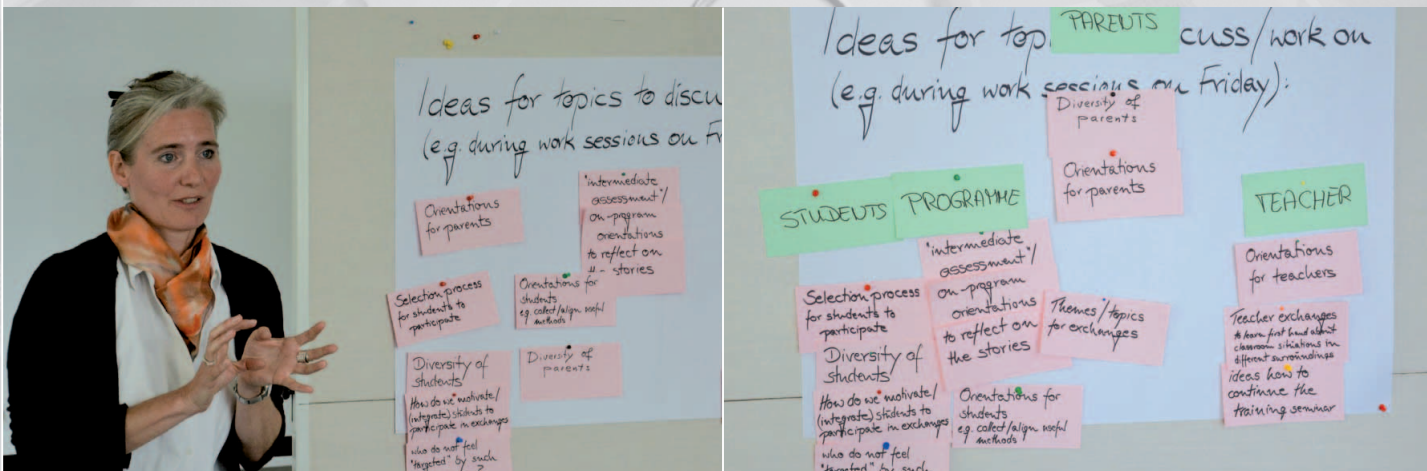 Ideas for topics to discu
(e.g. during work sessions on Fr
Orientations
for parents
"intermediate
assessment"/
on-program
orientations
to reflect on
"- stories
Selection process
for students to
participate
Orientations for
students
e.g. collect/align useful
methods
Diversity of
students
Diversity of
parents
How do we motivate/
(integrate) students to
participate in exchanges
who do not feel
"targeted" by such
?
PARENTS
Ideas for top cuss/work on
(e.g. during work sessions on Friday):
Diversity of
parents
Orientations
for parents
STUDENTS
PROGRAMME
TEACHER
"intermediate
assessment"/
on-program
orientations
to reflect on
the stories
Selection process
for students to
participate
Themes/topics
for exchanges
Orientations
for teachers
Diversity of
students
Teacher exchanges
to learn first hand about
classroom situations in
different surroundings
How do we motivate/
(integrate) students to
participate in exchanges
Orientations for
students
e.g. collect/align useful
methods
ideas how to
continue the
training seminar
who do not feel
"targeted" by such